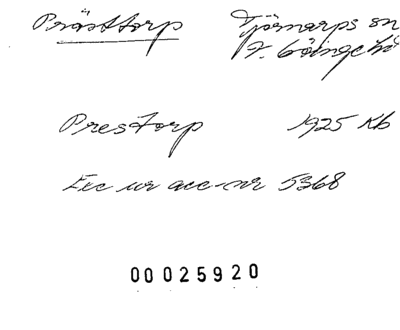 Prästtorp Tjörnarps sn
V. Göinge hd
Prestorp 1925 Kb
Exc ur acc-nr 5368
00025920